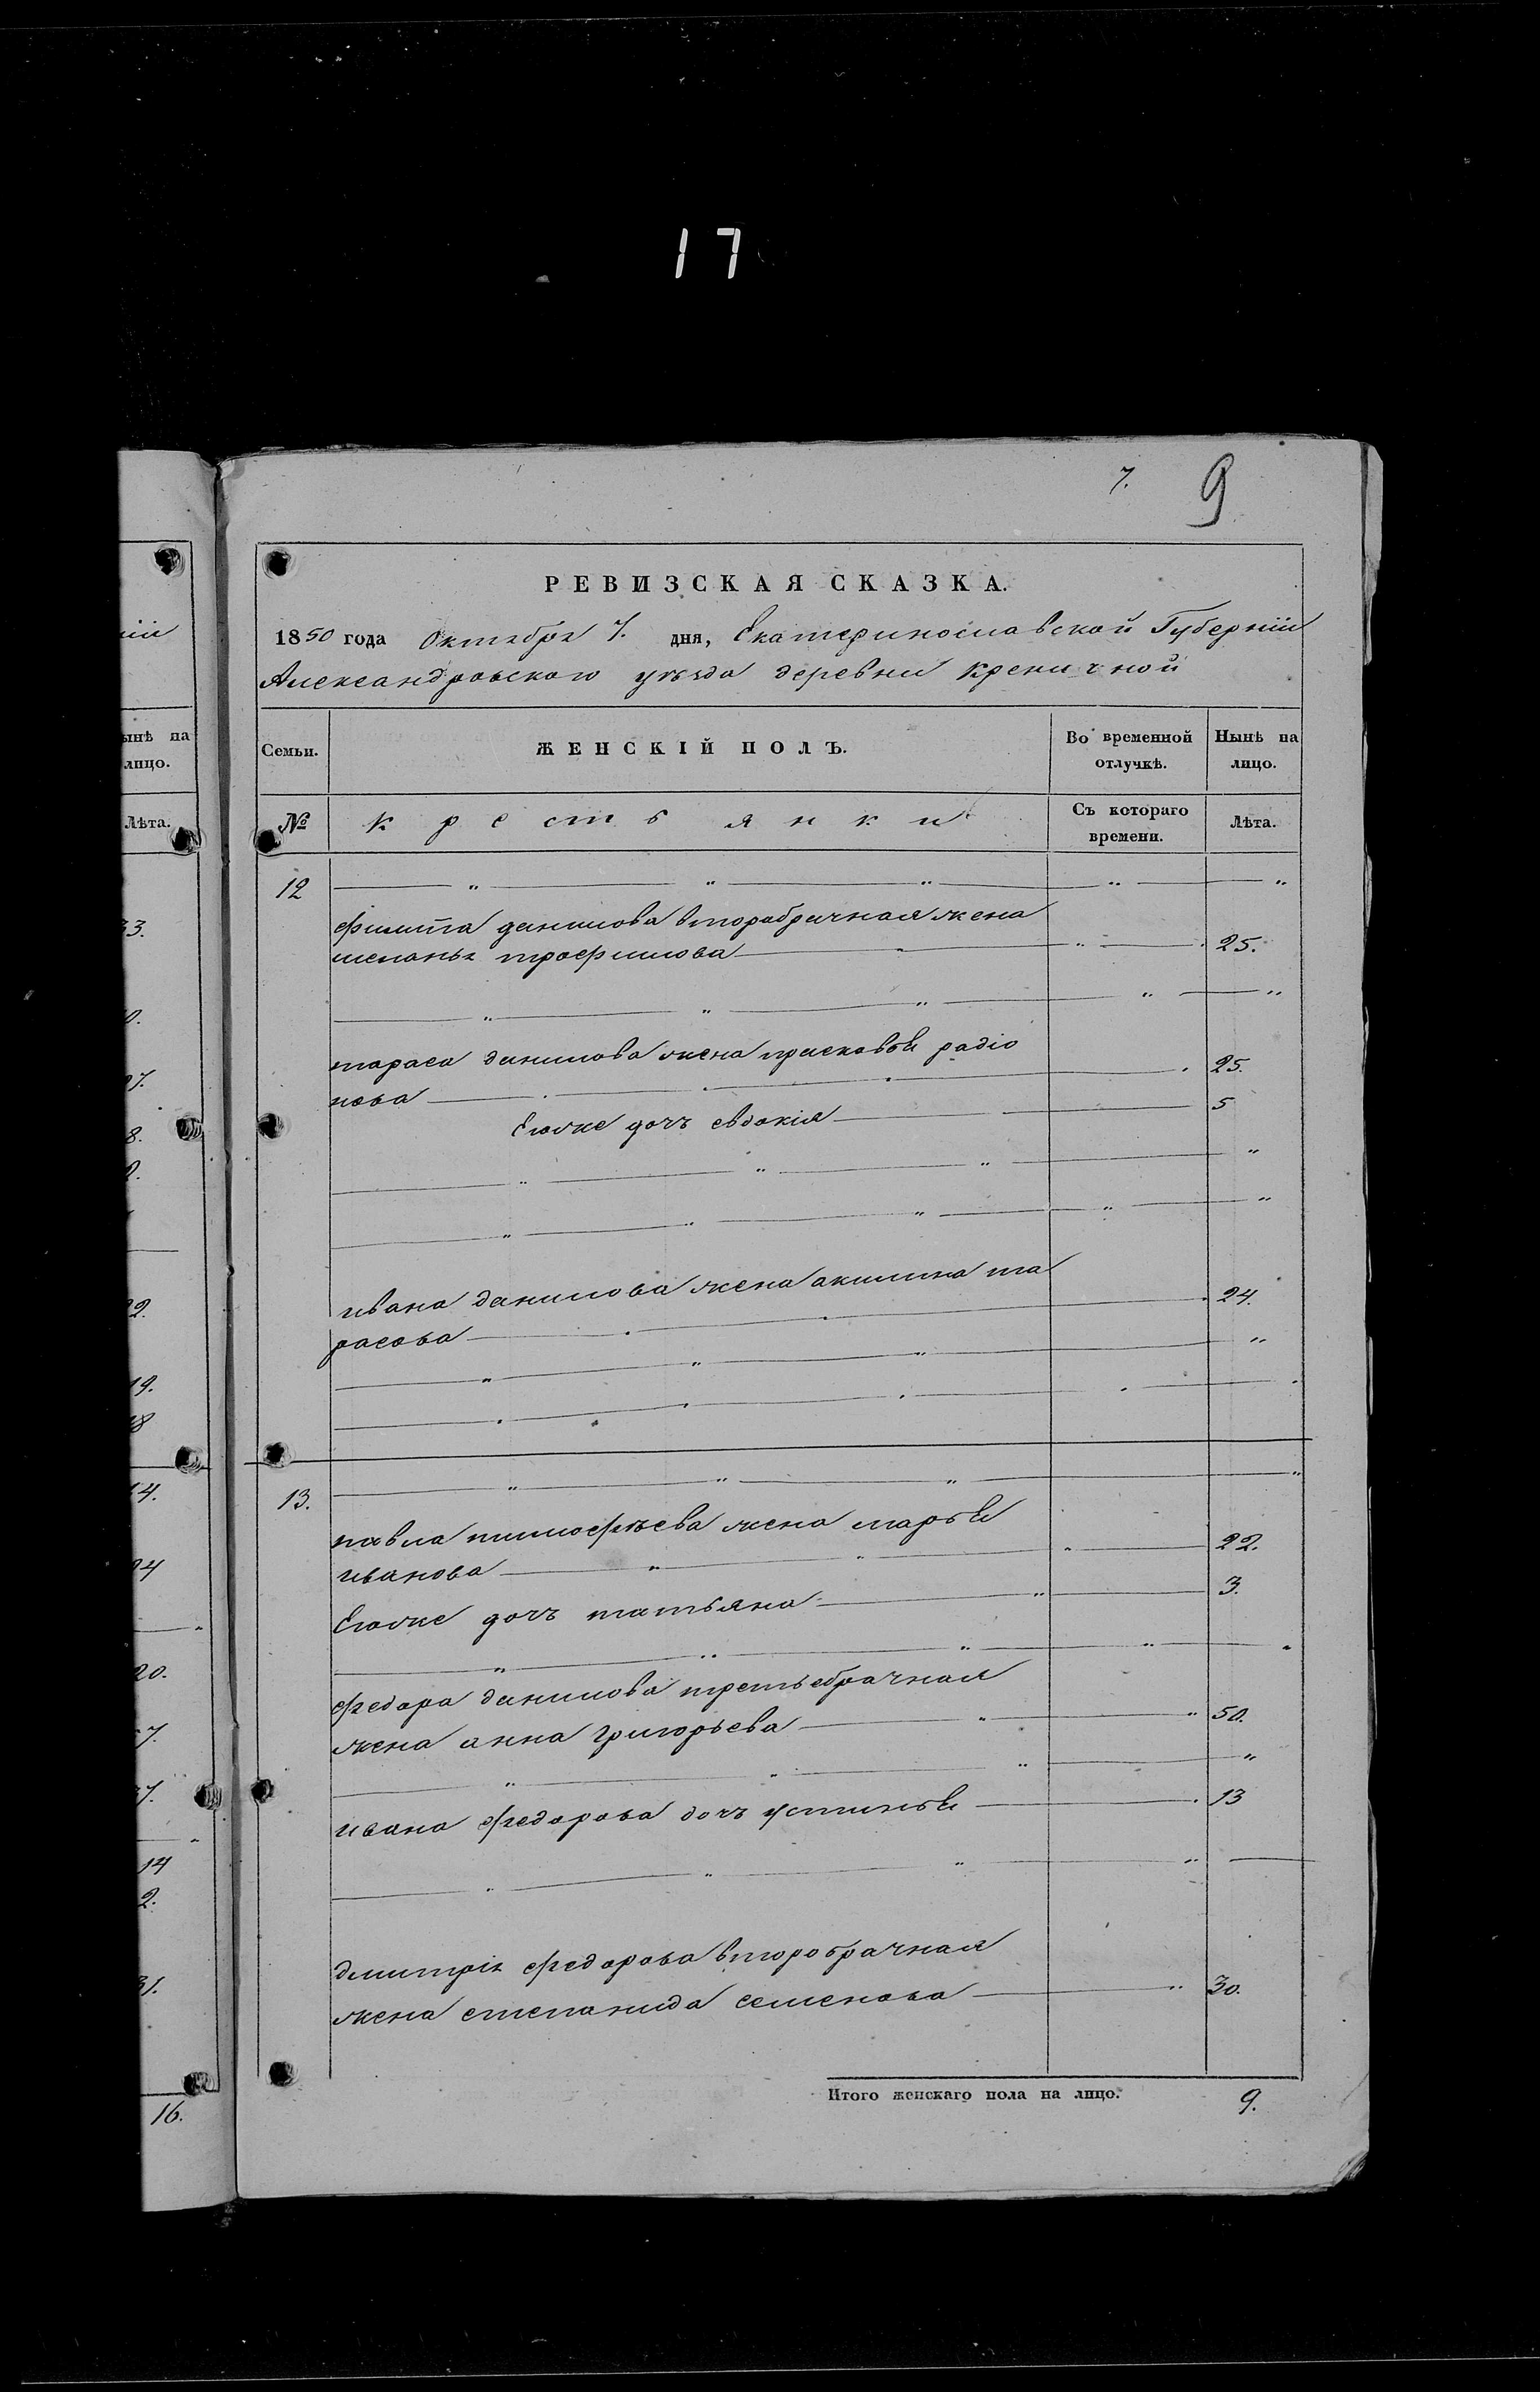 17
7. 9
РЕВИЗСКАЯ СКАЗКА.
1850 года Октября 7. дня, Екатеринославской Губерніи
Александровского уѣзда деревни Креничной
Семьи. ЖЕНСКІЙ ПОЛЪ. Во временной отлучкѣ. Нынѣ на лицо.
№ Крестьянки Съ котораго времени. Лѣта.
12 — " — " — " — " — "
филипа данилова вторабрачная жена
меланья трофимова — " — " — 25.
— " — " — " — " — "
тараса данилова жена прасковья радіо
нова — 25.
Егоже дочъ евдокія — 5
— " — " — " — "
— " — " — " — " — "
ивана данилова жена акилина та
расова — 24.
— " — " — " — "
— " — " — " — " — "
13. — " — " — " — "
павла тимофѣева жена марья
иванова — " — " — 22.
Егоже дочъ татьяна — " — 3.
— " — " — " — " — "
федора данилова третьебрачная
жена анна григорьева — " — " 50.
— " — " — " — "
ивана федорова дочъ устинья — 13
— " — " — " — " —
дмитрія федорова второбрачная
жена степанида семенова — " 30.
Итого женскаго пола на лицо. 9.
ніи
ынѣ на
лицо.
Лѣта.
33.
0.
27.
8.
2.
22.
19.
18
14.
24
20.
57.
37.
14
2.
31.
16.